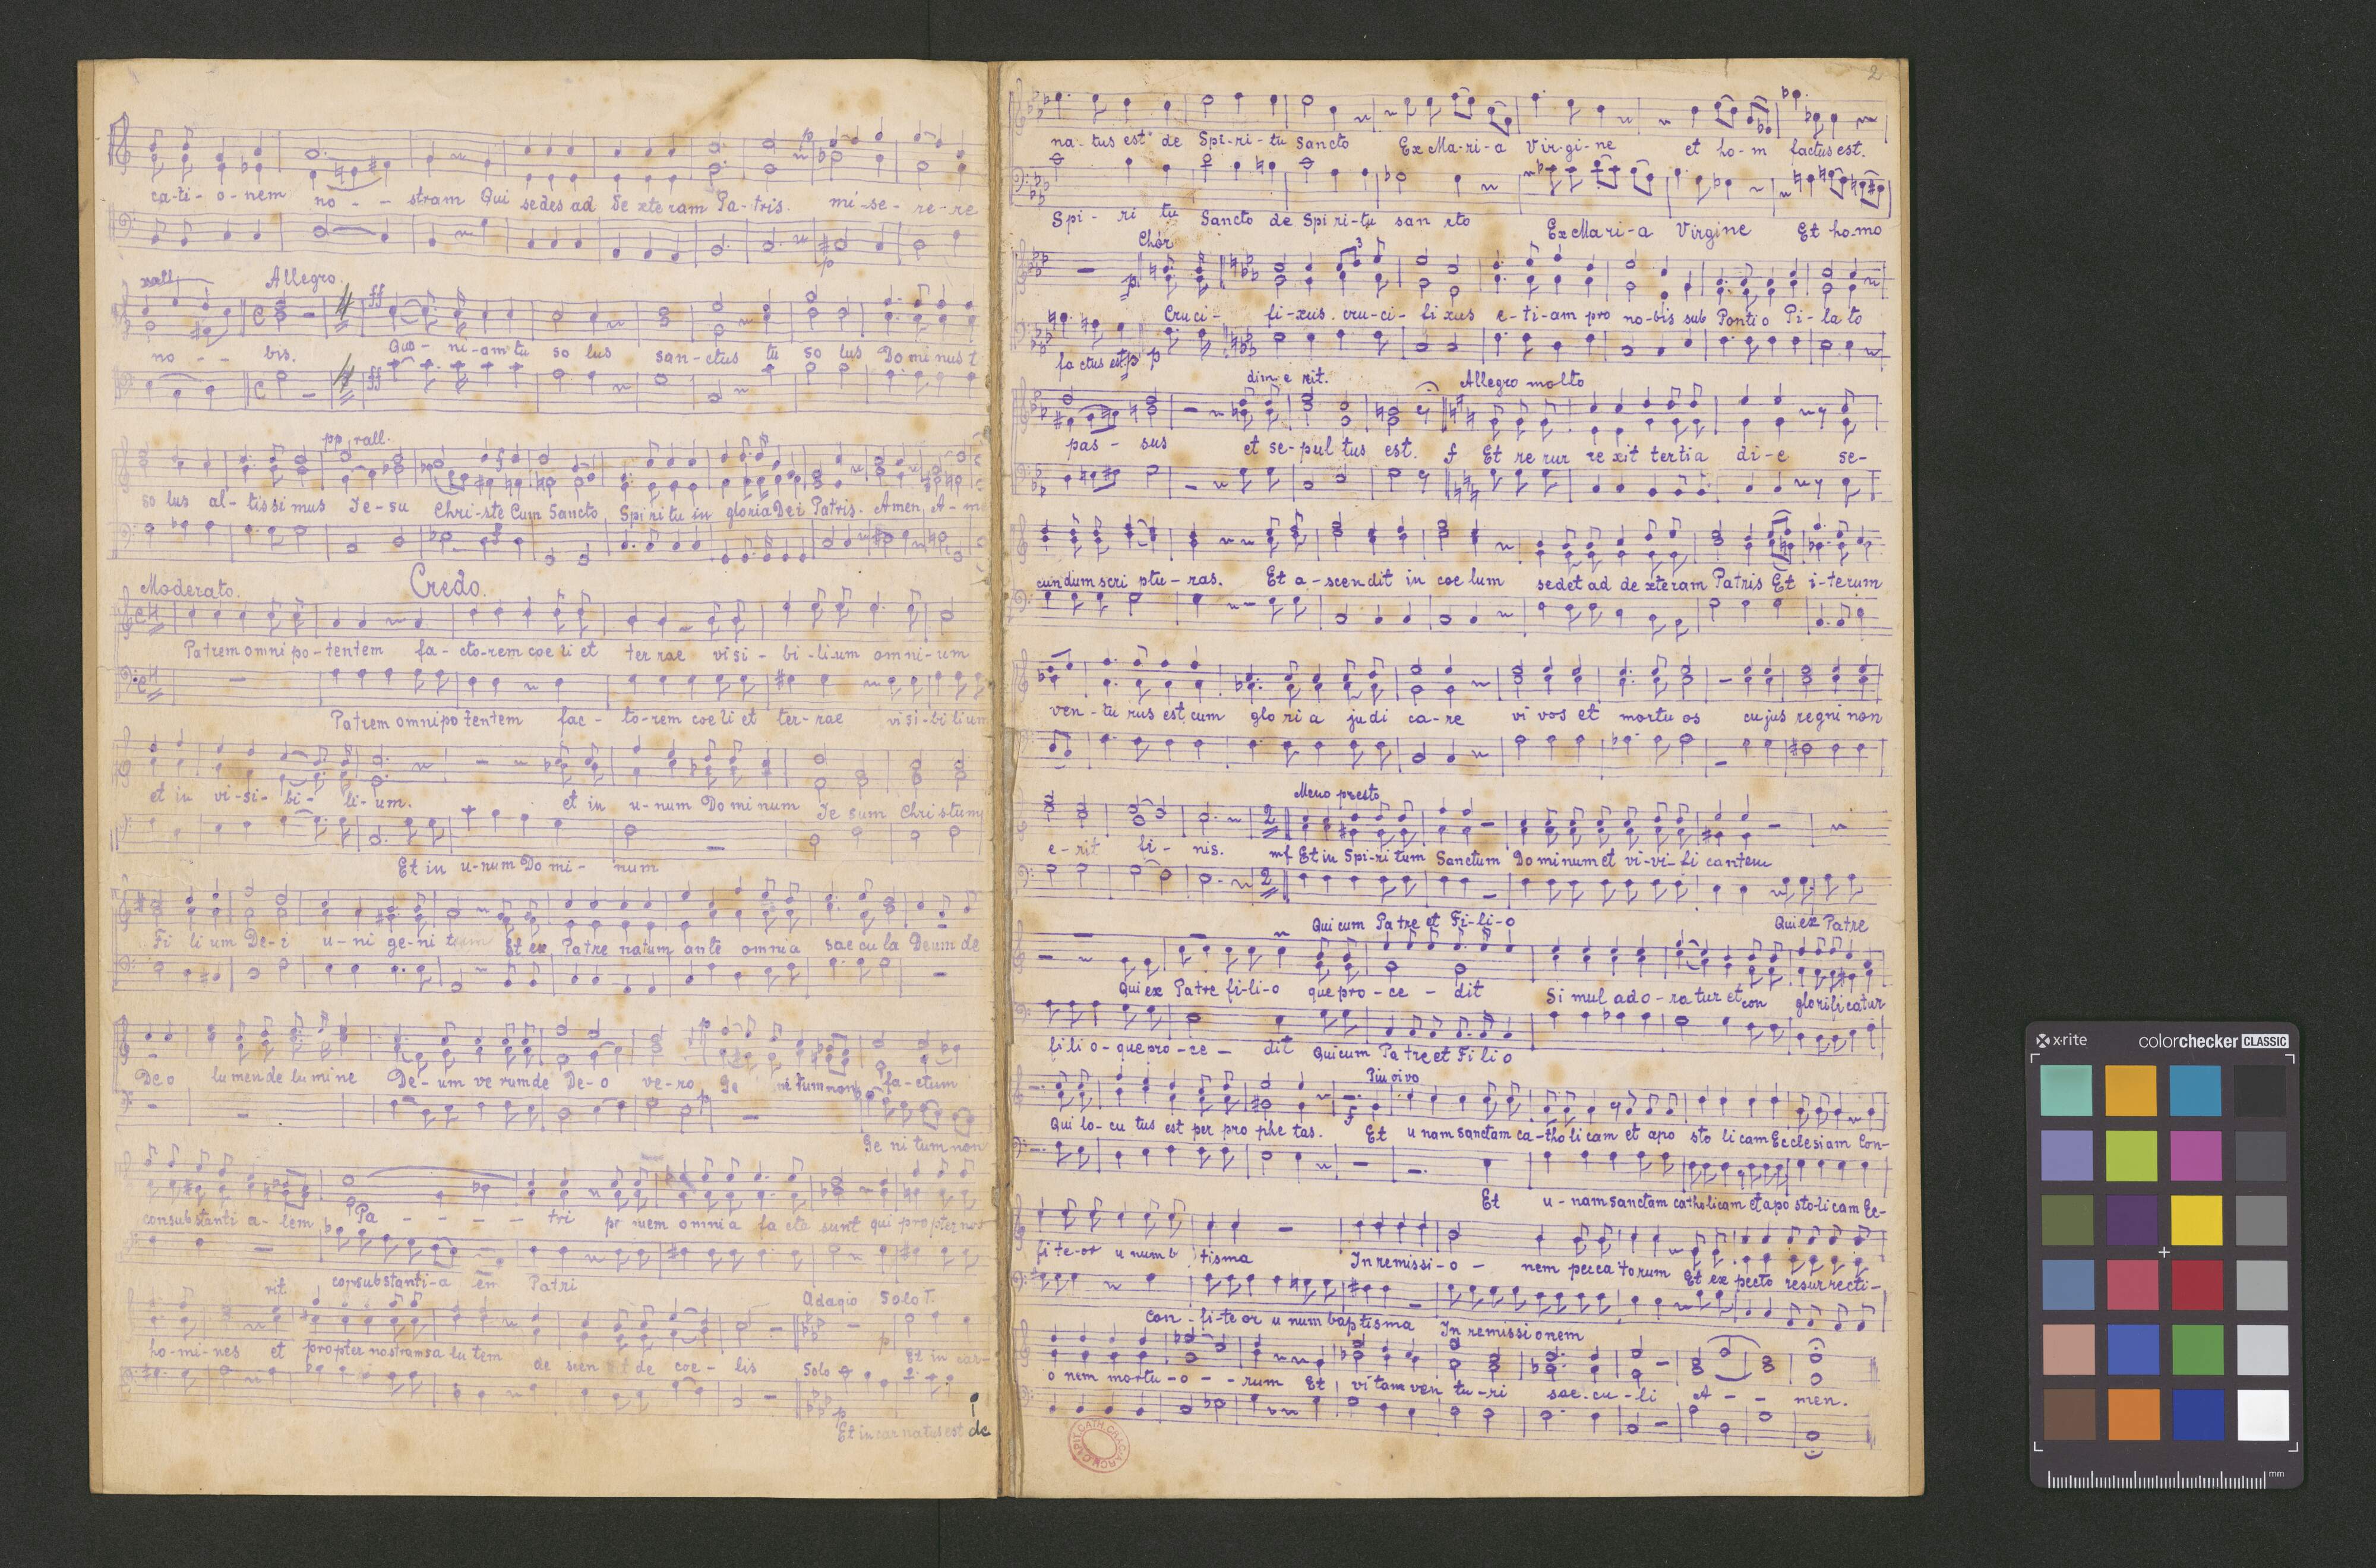 p
ca-ti-o-nem no - - stram Qui sedes ad dexteram Pa-tris. mi-se-re-re
p
rall Allegro
ff
no - - bis. Quo-ni-am tu so lus san-ctus tu so lus Dominus t
ff
pp rall.
so lus al-tissimus Je-su Chri-ste Cum Sancto Spiritu in gloria Dei Patris. Amen, A-m
Moderato. Credo.
Patrem omni po-tentem fa-cto-rem coe li et ter rae visi-bi-li-um omni-um
Patrem omnipotentem fac-to-rem coe li et ter-rae visi-bi lium
et in vi-si-bi-li-um. et in u-num Dominum Je sum Christum
Et in u-num Do mi-num
Fi li um De-i u-ni ge-ni Et ex Patre natum ante omnia sae cu la Deum de
p
Deo lumen de lu mine De-um ve rum de De-o ve-ro Ge ni tum non fa-ctum
p
Ge ni tum non
consubstanti a-lem Pa - - - - tri omnia facta sunt qui propter nos
consubstanti-a em Patri
rit. Adagio Solo T.
p
ho-mi-nes et propter nostram sa lu tem de scen de coe-lis Solo Et in car-
p
Et in car natus est de
2
na-tus est de Spi-ri-tu Sancto Ex Ma-ri-a Vir-gi-ne et ho-m factus est.
Spi-ri tu Sancto de Spi ri-tu san cto Ex Ma ri-a Virgine Et ho-mo
Chór
3
p
Cruci-fi-xus. cru-ci-fi xus e-ti-am pro no-bis sub Pontio Pi-la to
factus est. p p
dim e rit. Allegro molto
pas-sus et se-pul tus est. f Et re rur re xit tertia di-e se-
cundum scri ptu-ras. Et a-scendit in coe lum sedet ad dexteram Patris Et i-terum
ven-tu rus est cum glo ri a judi ca-re vi vos et mortu os cujus regni non
Meno presto
e-rit fi-nis. mf Et in Spi-ri tum Sanctum Dominum et vi-vi-fi cantem
Qui cum Patre et Fi-li-o Qui ex Patre
Qui ex Patre fi-li-o que pro-ce-dit Si mul ado-ra tur et con glorificatur
fi li o-que pro-ce-dit Qui cum Pa tre et Fi li o
Piu vivo
f
Qui lo-cu tus est per pro phe tas. Et u nam sanctam ca-tho li cam et apo sto li cam Ecclesiam Con-
Et u-nam sanctam catholicam et apo sto-li cam Ec-
fi te-or u num b tisma In remissi-o-nem pecca torum Et ex pecto resurrecti-
con-fi-te or u num baptisma In remissionem
o nem mortu-o - - rum Et vi tam ven tu-ri sae-cu-li A - - men.